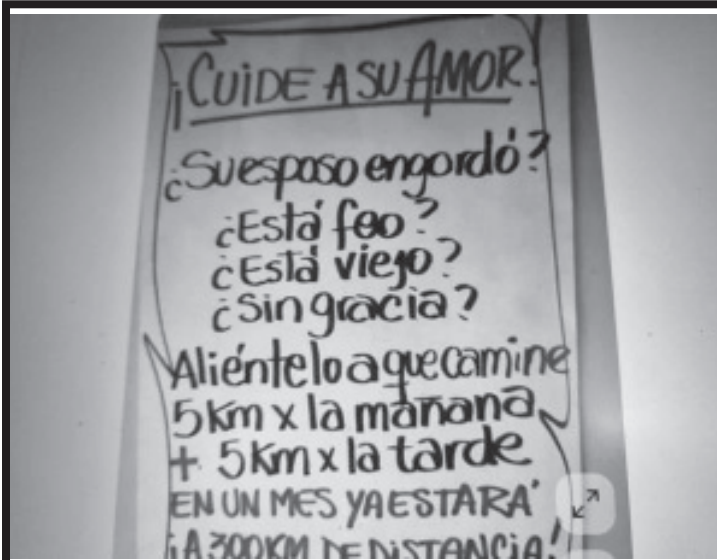 ¡CUIDE A SU AMOR!
¿Su esposo engordó?
¿Está feo?
¿Está viejo?
¿Sin gracia?
Aliéntelo a que camine
5 Km x la mañana
+ 5 Km x la tarde
EN UN MES YA ESTARÁ
¡A 300 KM DE DISTANCIA!